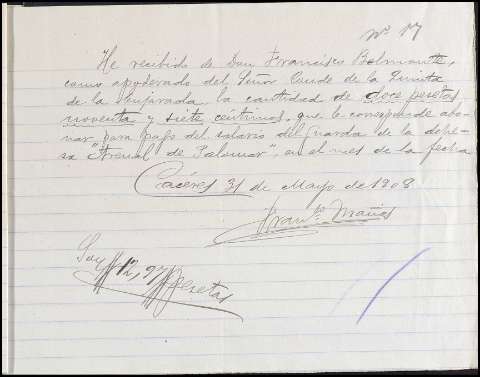 Nº 17
He recibido de Don Francisco Belmonte,
como apoderado del Señor Conde de la Quinta
de la Enjarada, la cantidad de doce pesetas
noventa y siete centimos, que le corresponde abo-
nar para pago del salario del guarda de la dehe-
sa "Arenal de Palomar", en el mes de la fecha
Cáceres 31 de Mayo de 1908
Son # 12,97 # pesetas